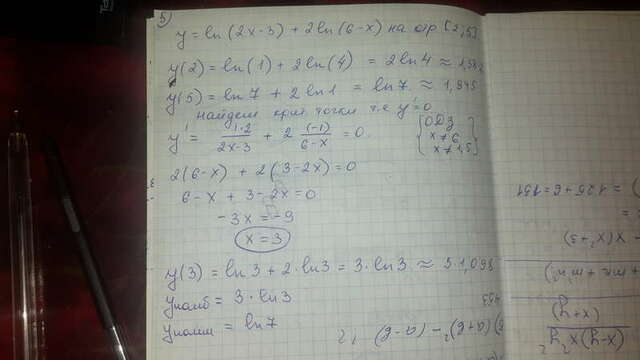 5)
y = ln(2x-3) + 2ln(6-x) на отр [2;5]
y(2) = ln(1) + 2ln(4) = 2ln4 ≈
y(5) = ln7 + 2ln1 = ln7 ≈ 1,945
найдем крит точки т.е y'=0
y' = 1·2/(2x-3) + 2 (-1)/(6-x) = 0
{ОДЗ
x≠6
x≠1,5}
2(6-x) + 2(3-2x)=0
6-x + 3-2x=0
-3x = -9
x = 3
y(3) = ln3 + 2·ln3 = 3·ln3 ≈ 3 1,098
yнаиб = 3·ln3
yнаим = ln7
= 125+6=151
x(x²+5)
(x+y)
(x-y)
453
(a+b)² - (a-b)